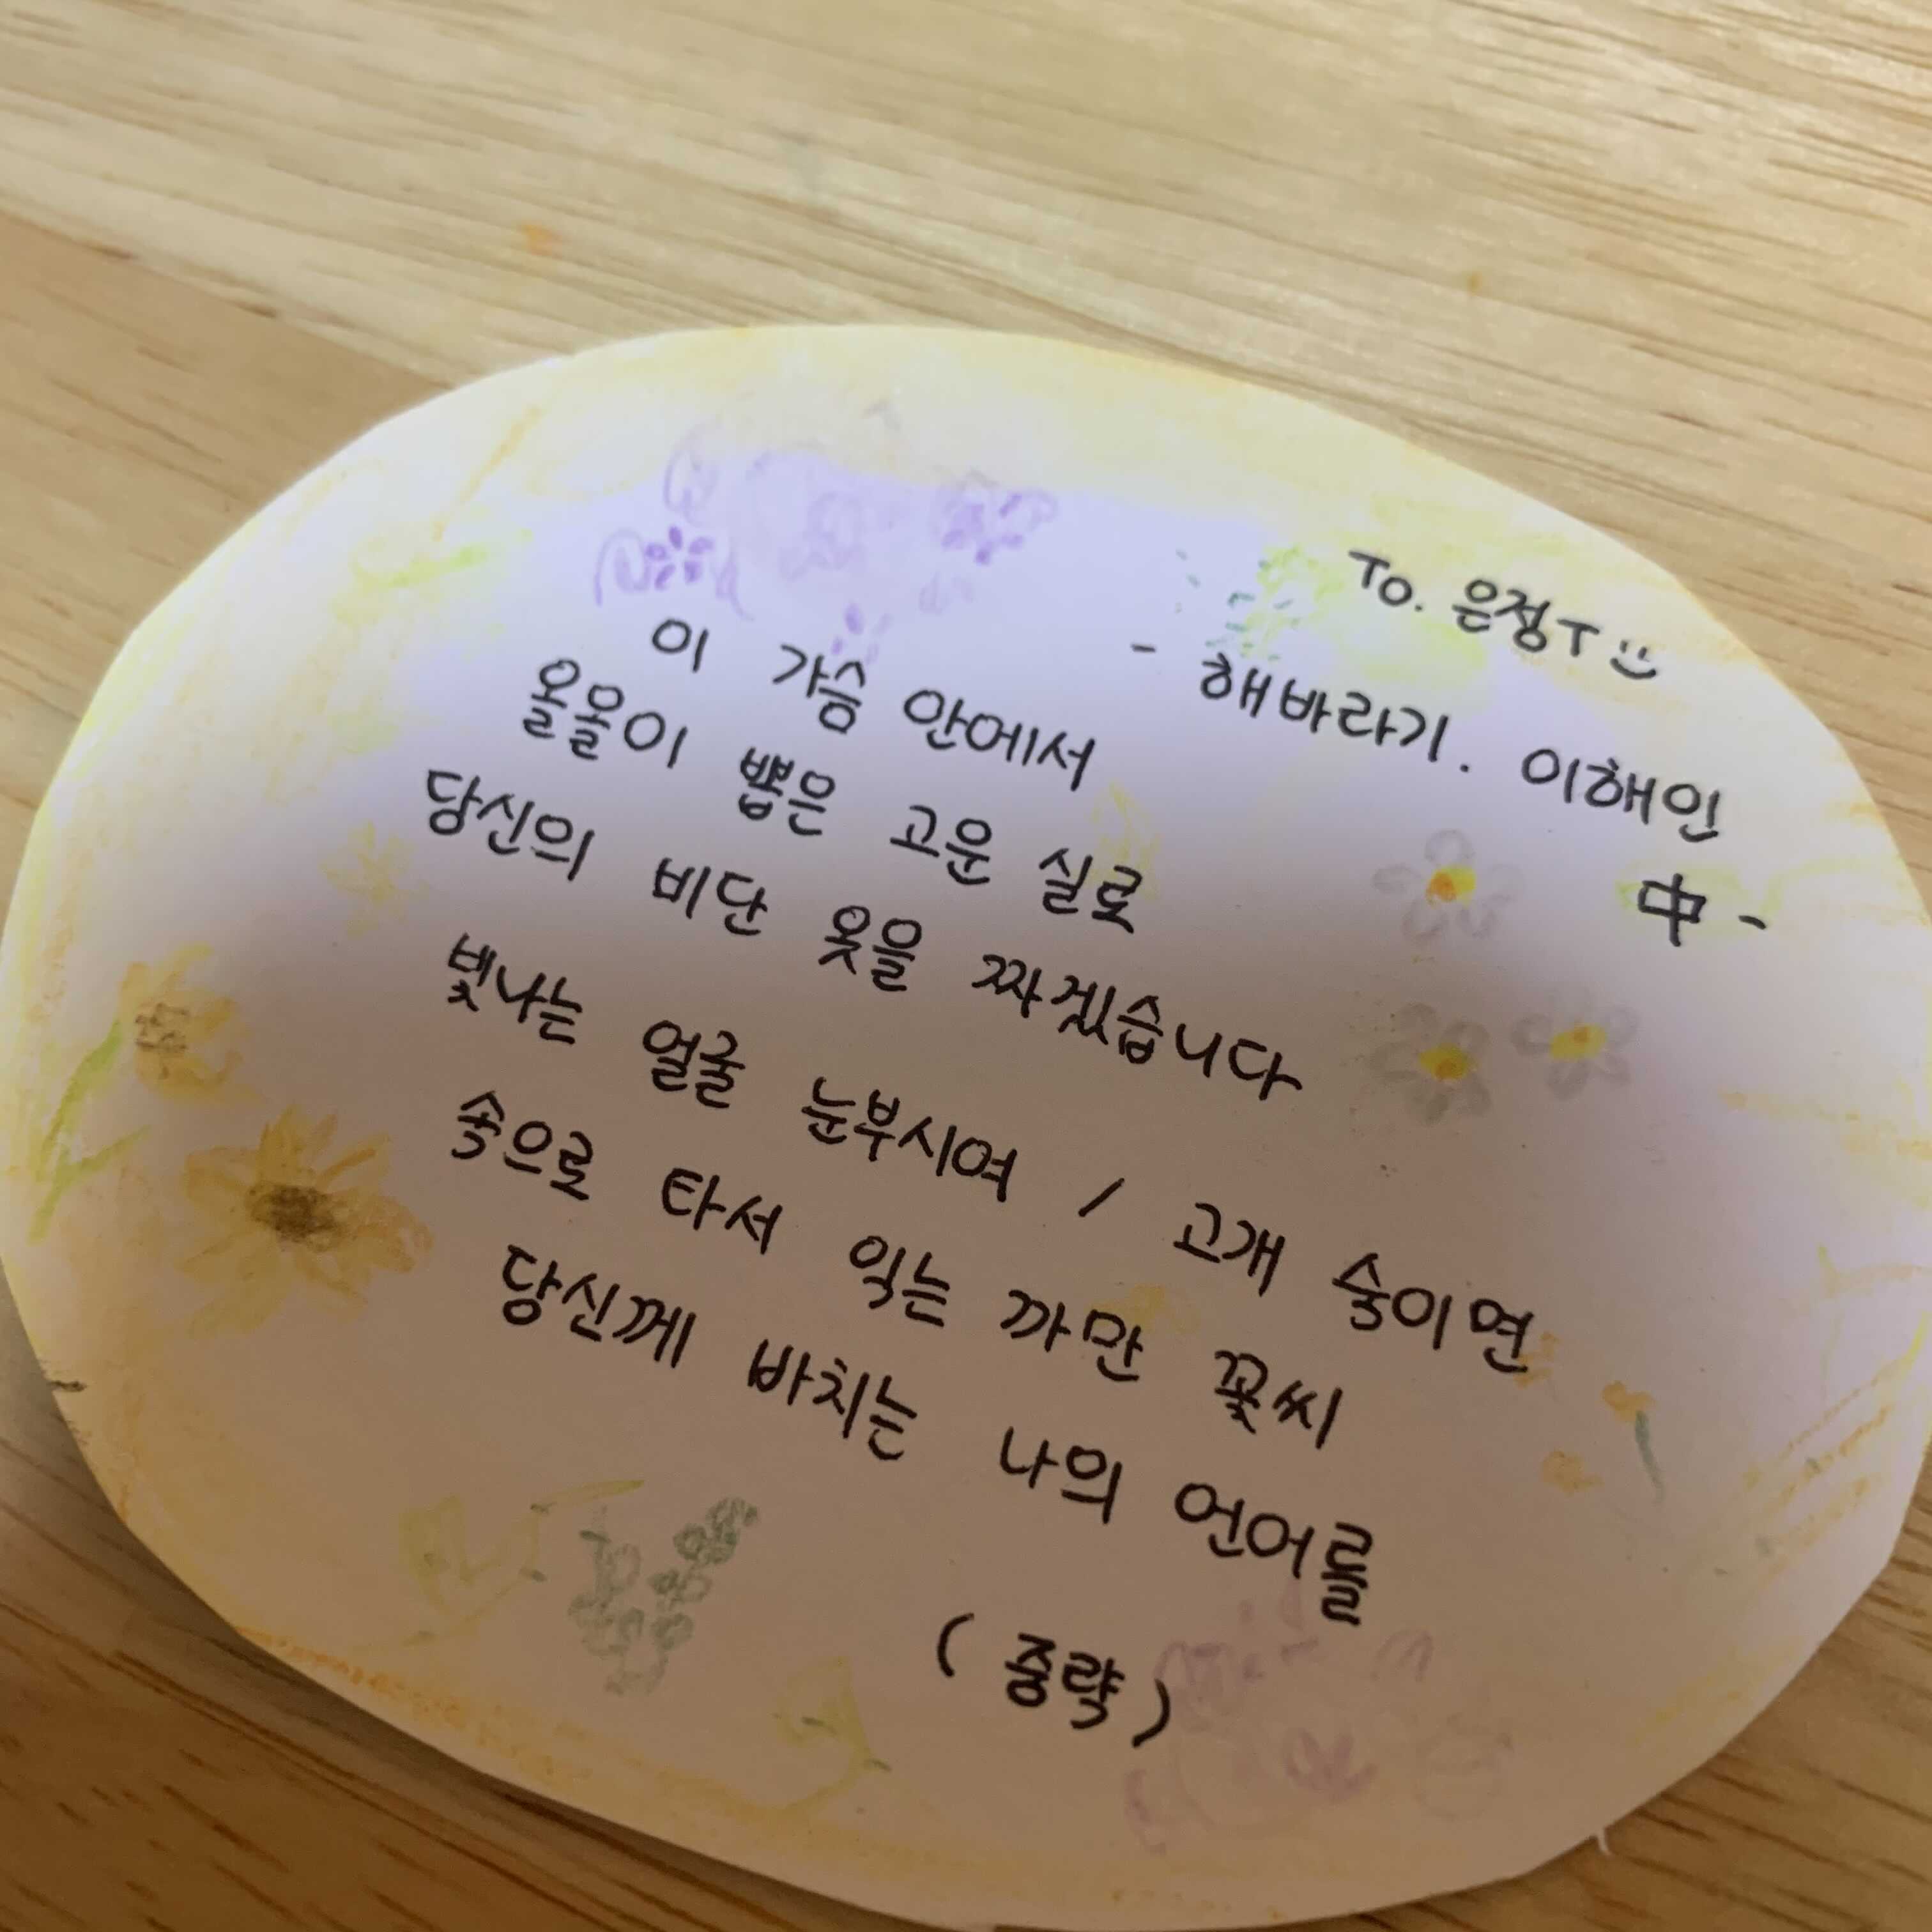 To. 은정T
- 해바라기. 이해인
中 -
이 가슴 안에서
올올이 뽑은 고운 실로
당신의 비단 옷을 짜겠습니다
빛나는 얼굴 눈부시여 / 고개 숙이면
속으로 타서 익는 까만 꽃씨
당신께 바치는 나의 언어를
(중략)